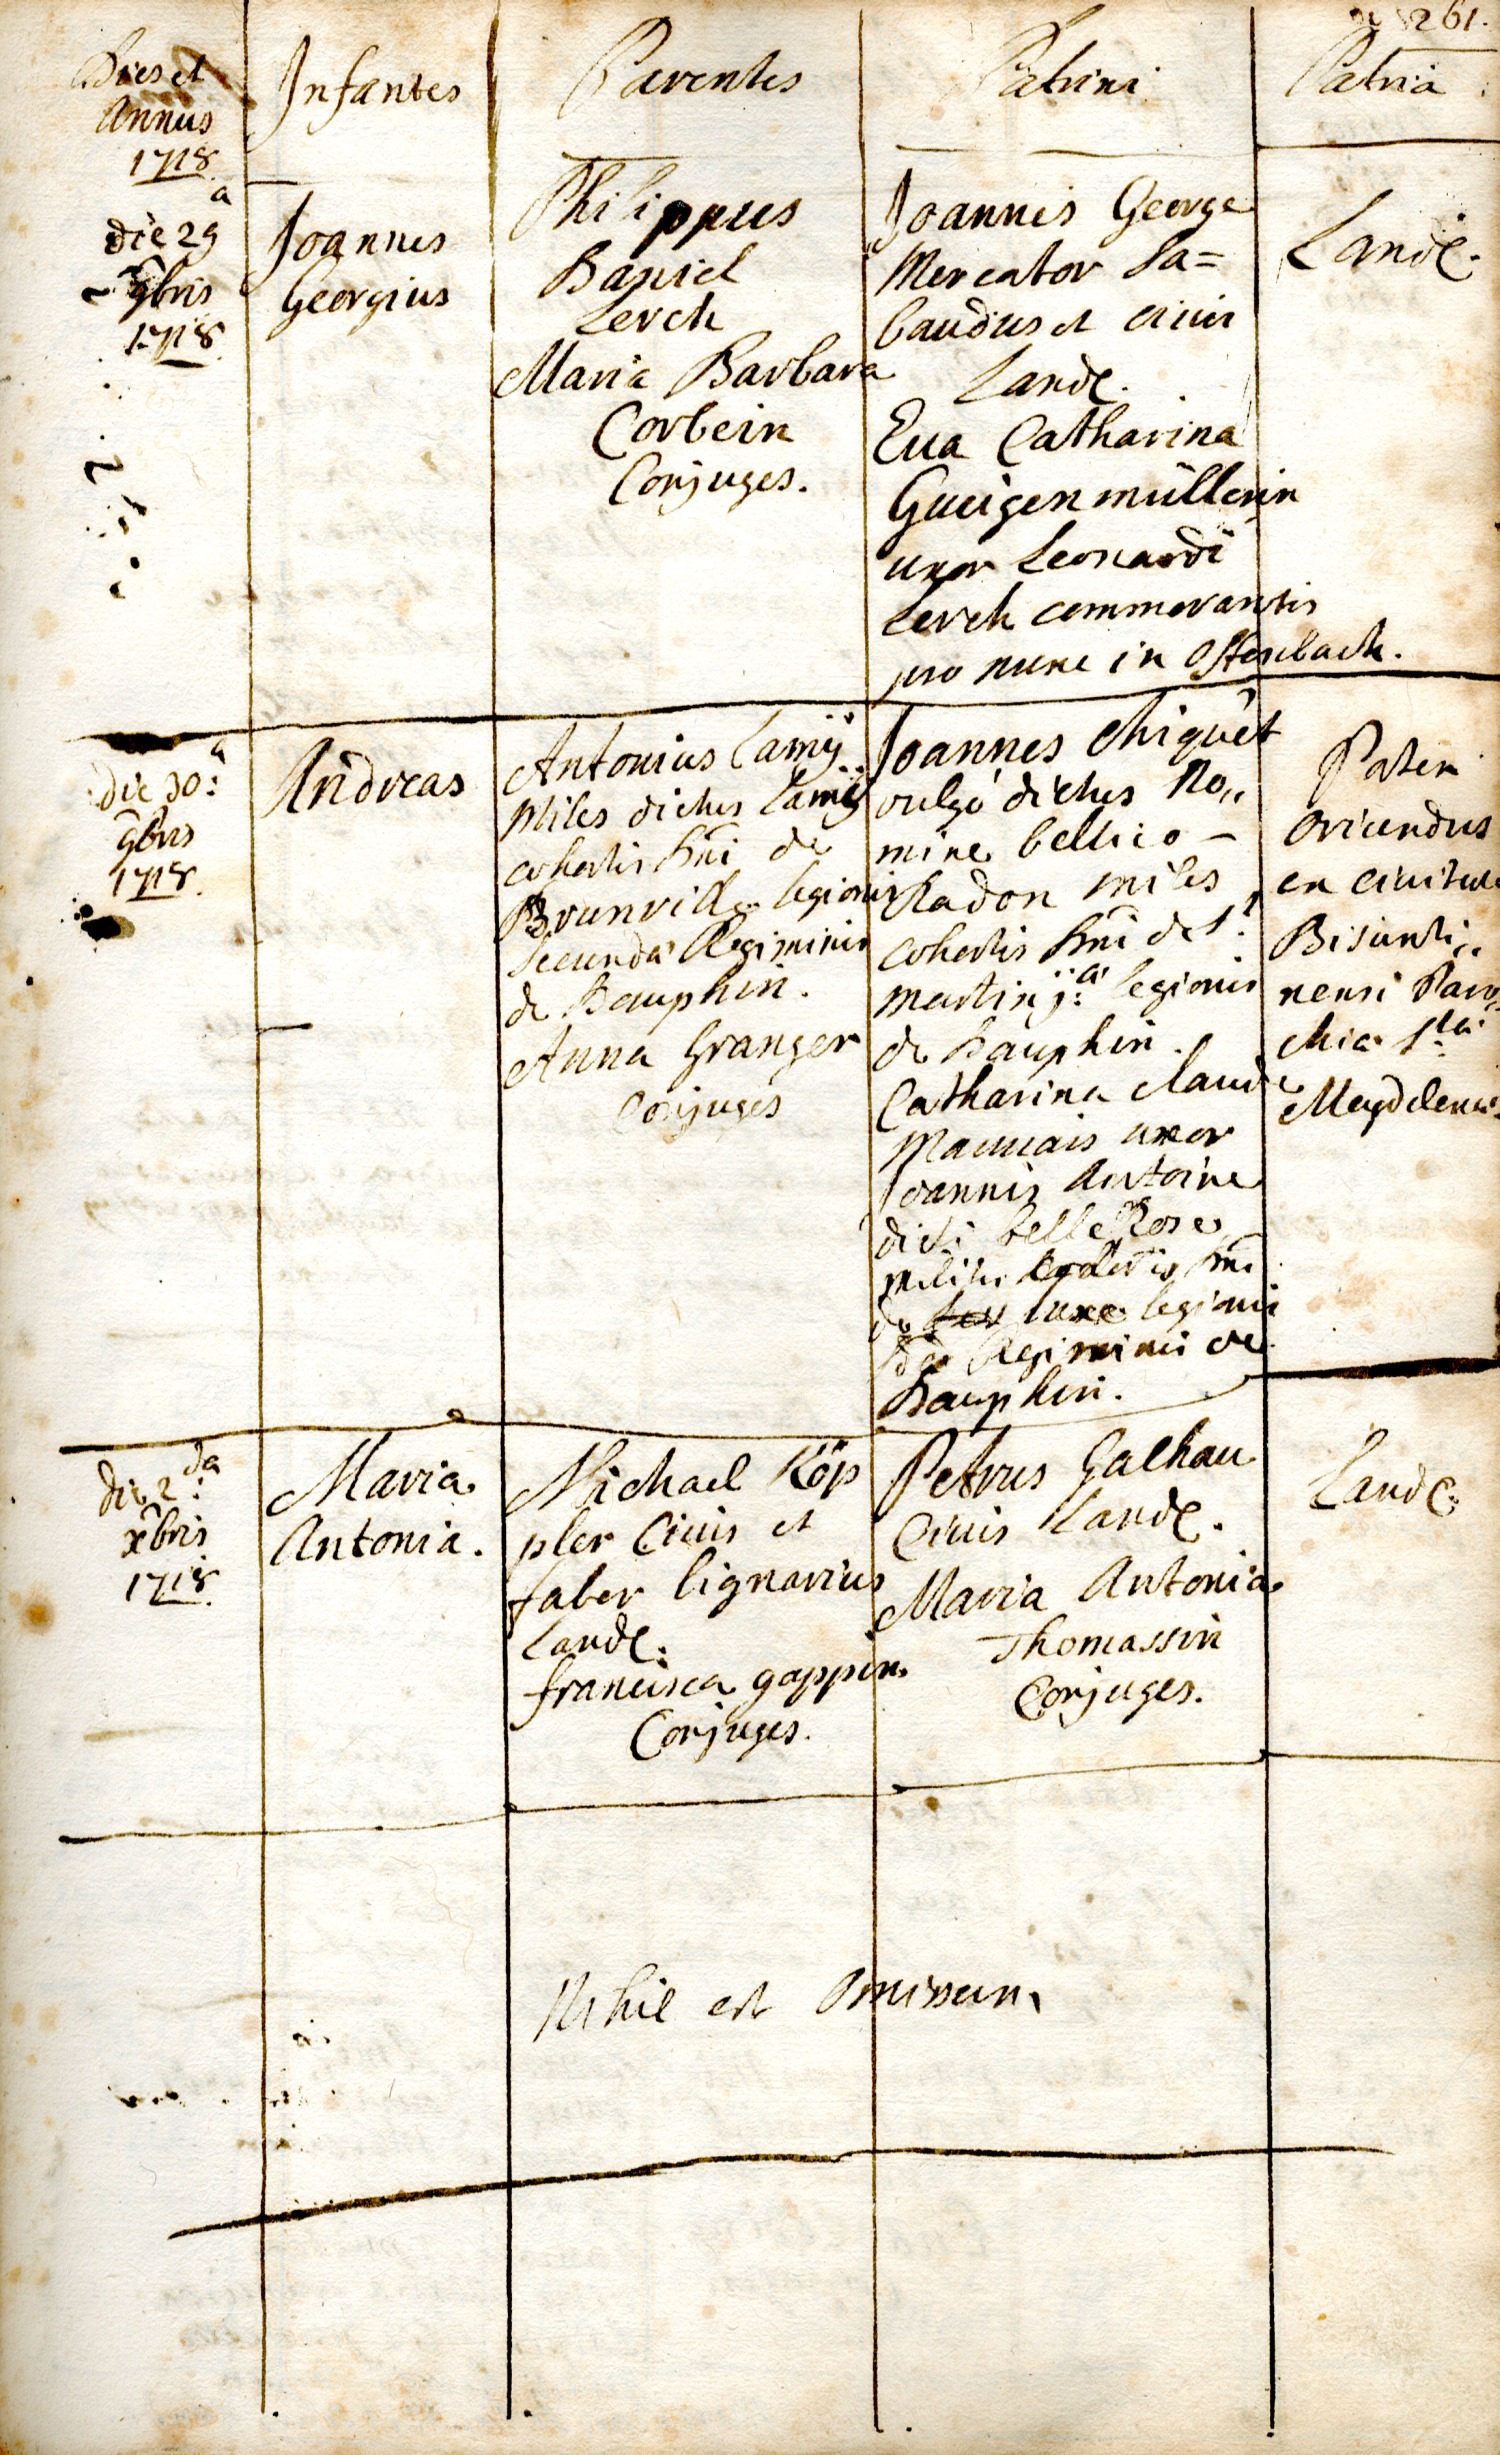 261.
Dies et
Annus
1718
Infantes
Parentes
Patrini
Patria
die 29
a
9bris
1718
Joannes
Georgius
Philippus
Daniel
Lerch
Maria Barbara
Corbein
Conjuges.
Joannes George
Mercator Sa=
baudus et civis
Landę.
Eva Catharina
Gueigenmüllerin
uxor Leonardi
Lerch commorantis
pro nunc in Offenbach.
Landę.
die 30:
a
9bris
1718.
Andreas
Antonius Lamÿ
Miles dictus Lamÿ
cohortis Dni de
Brunville legionis
secunda Regiminis
de Dauphin.
Anna Granger
Conjuges
Joannes Chiquet
vulgo dictus No„
mine bellico -
Kadon miles
cohortis Dni de St.
martin j:a legionis
de Dauphin.
Catharina Claude
Mauuais uxor
Joannis Antoine
dicti belleRose
militis cohortis Dni
de luxe legionis
Regiminis de
Dauphin.
Pater
oriundus
ex civitate
Bisunti„
nensi Paro„
chia Sta
Magdelena.
die 2:
da
xbris
1718.
Maria
Antonia.
Michael Köp
pler Civis et
faber lignarius
Landę.
francisca gappin
Conjuges.
Petrus Galhau
Civis Landę.
Maria Antonia
Thomassin
Conjuges.
Landę.
Nihil est Omissum